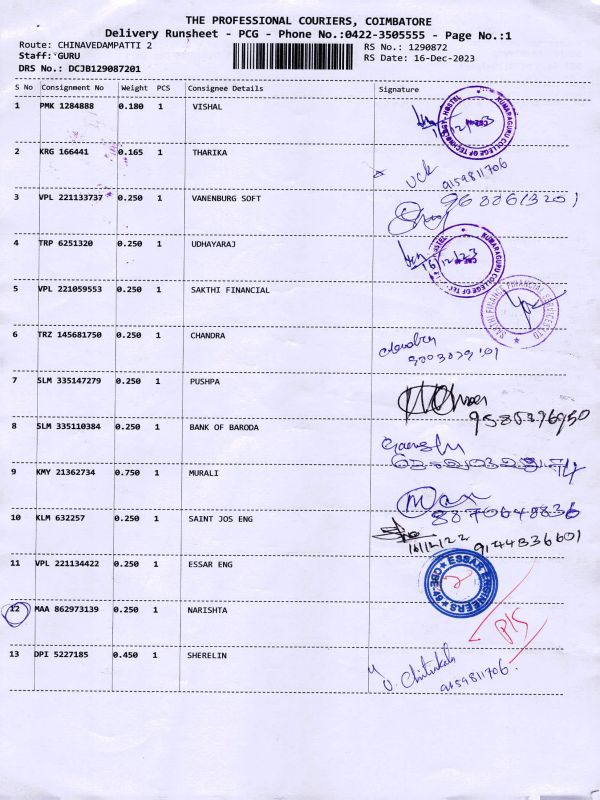 THE PROFESSIONAL COURIERS, COIMBATORE
Delivery Runsheet - PCG - Phone No.:0422-3505555 - Page No.:1
Route: CHINAVEDAMPATTI 2 RS No.: 1290872
Staff: GURU RS Date: 16-Dec-2023
DRS No.: DCJB129087201
S No Consignment No Weight PCS Consignee Details Signature
1 PMK 1284888 0.180 1 VISHAL
KUMARAGURU COLLEGE OF TECHNOLOGY-HOSTEL
2 KRG 166441 0.165 1 THARIKA
9159811706
3 VPL 221133737 0.250 1 VANENBURG SOFT
4 TRP 6251320 0.250 1 UDHAYARAJ
16/12/23
5 VPL 221059553 0.250 1 SAKTHI FINANCIAL
SAKTHI FINANCE FINANCIAL SERVICES LTD
6 TRZ 145681750 0.250 1 CHANDRA
7 SLM 335147279 0.250 1 PUSHPA
8 SLM 335110384 0.250 1 BANK OF BARODA
9 KMY 21362734 0.750 1 MURALI
8870648836
10 KLM 632257 0.250 1 SAINT JOS ENG
9144836601
11 VPL 221134422 0.250 1 ESSAR ENG
ESSAR ENGINEERS
12 MAA 862973139 0.250 1 NARISHTA
P/S
13 DPI 5227185 0.450 1 SHERELIN
9159811706